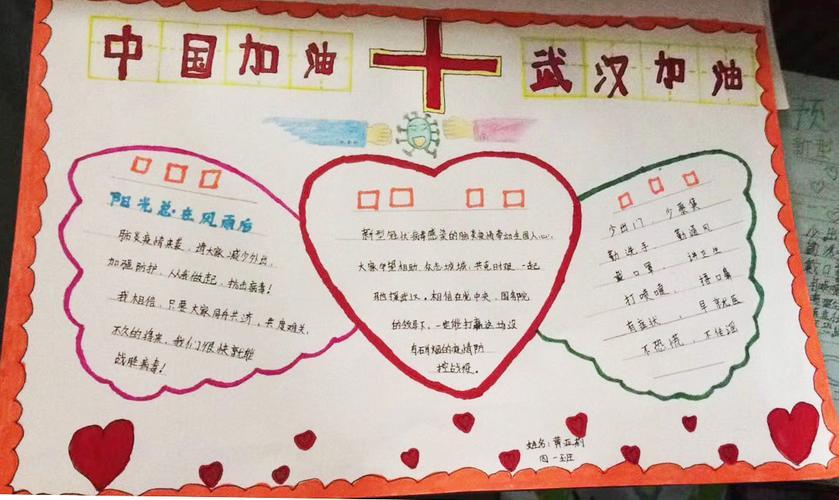 中国加油
武汉加油
阳光总在风雨后
肺炎疫情来袭，请大家减少外出，
加强防护，从我做起，抗击病毒！
我相信，只要大家同舟共济，共度难关，
不久的将来，我们很快就能
战胜病毒！
新型冠状病毒感染的肺炎疫情牵动全国人心，
大家守望相助，众志成城，共克时艰，一起
驰援武汉，相信在党中央、国务院
的领导下，一定能打赢这场没
有硝烟的疫情防
控战役。
少出门，少聚集
勤洗手，勤通风
戴口罩，讲卫生
打喷嚏，捂口鼻
有症状，早就医
不恐慌，不信谣
姓名：黄亚
四一班
预
新型